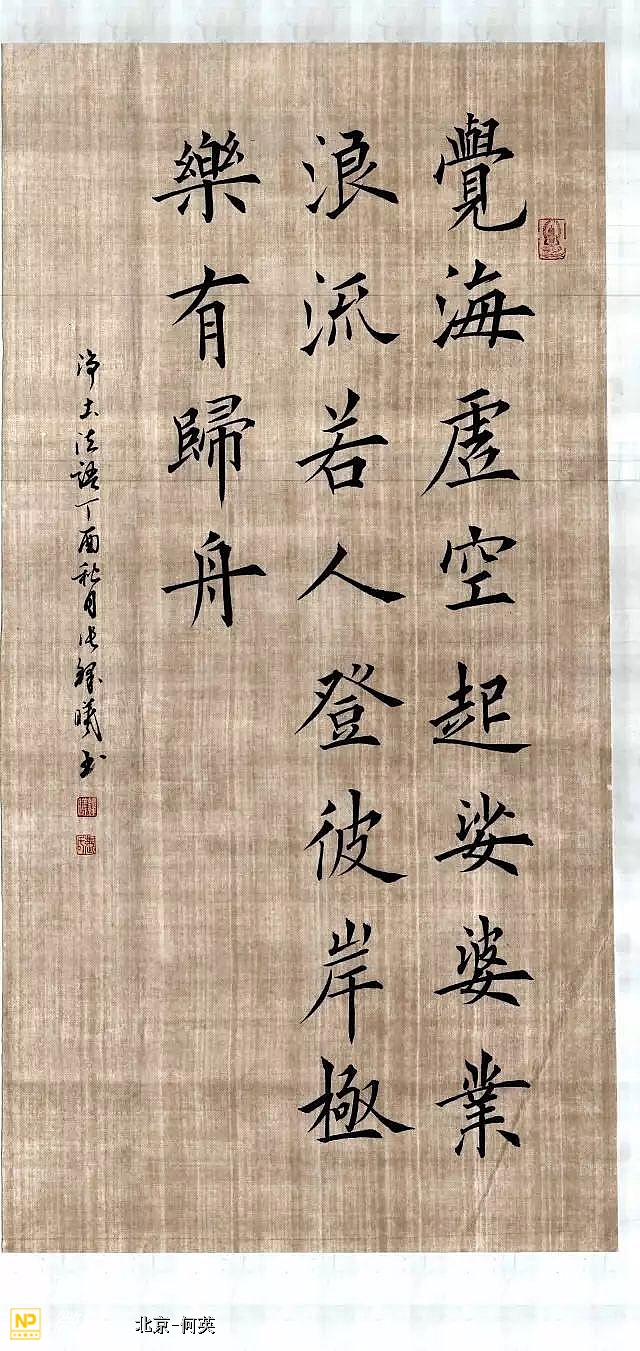 覺海虛空起娑婆業
浪流若人登彼岸極
樂有歸舟
净土法語丁酉秋月张 曦书
NP
北京-何英